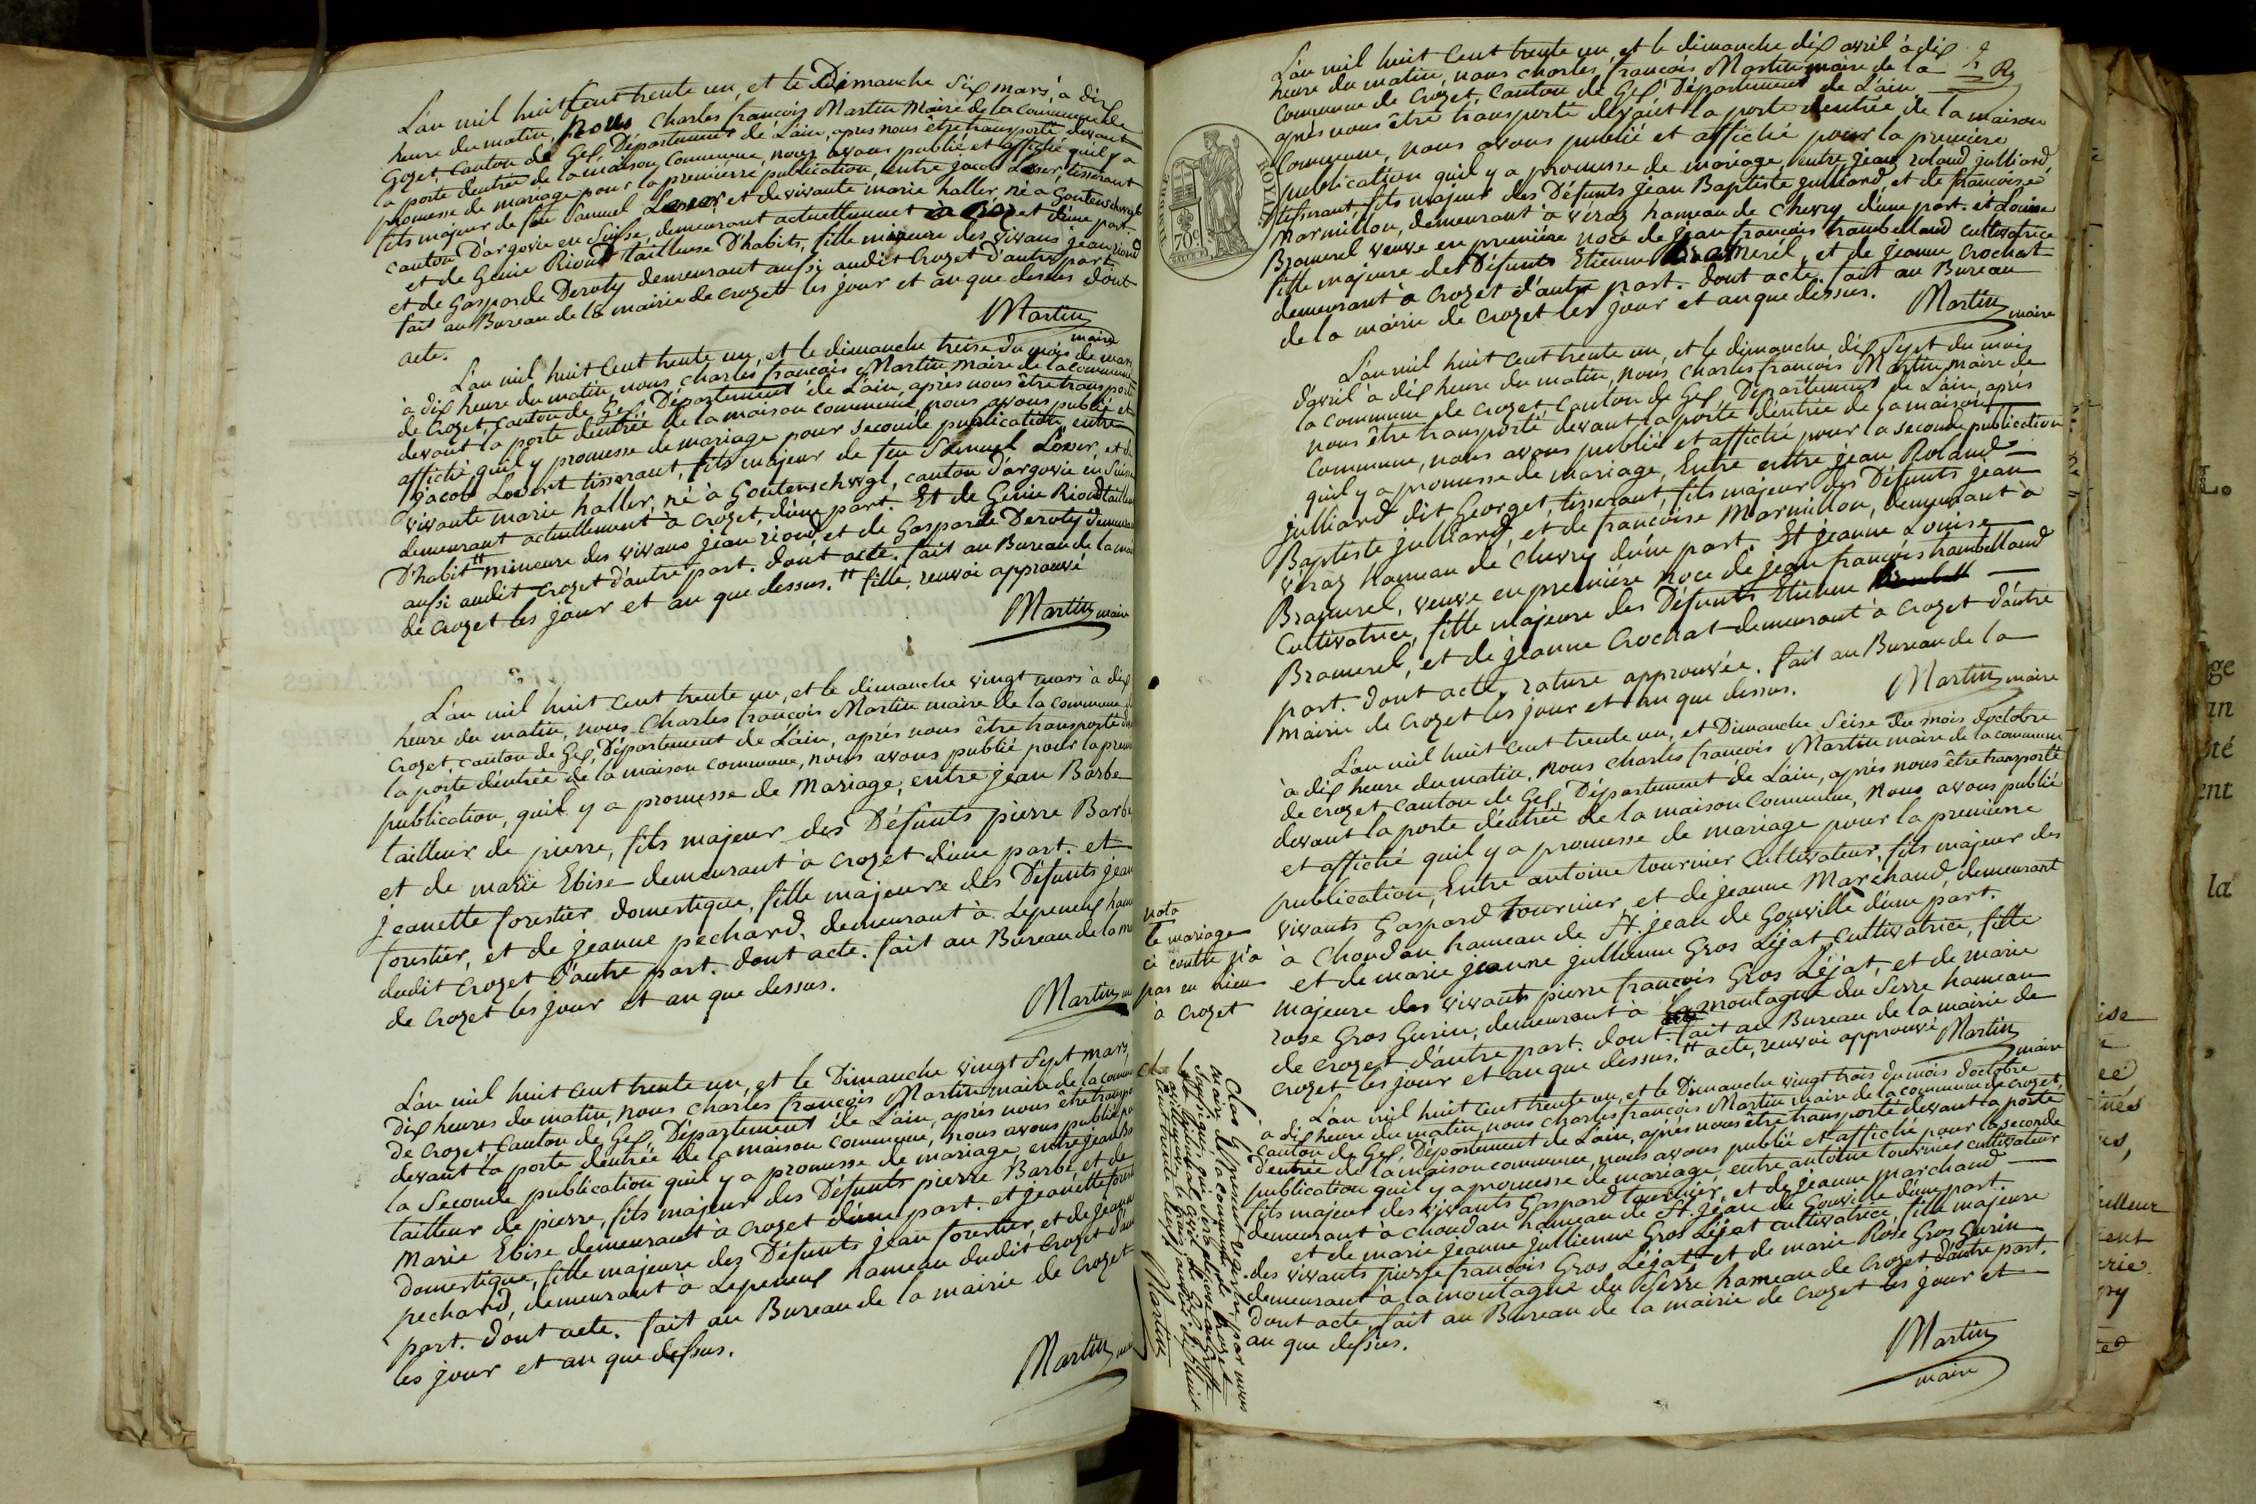 L'an mil huit Cent trente un, et le Dimanche Six mars, à dix
heure du matin, nous Charles françois Martin Maire de la Commune de
Crozet, canton de Gex, Département de L'ain, apres nous être transporté devant
la porte d'entrée de la maison Commune, nous avons publié et affiché qu'il y a
promesse de mariage pour la première publication, entre jacob Loser, tisserant
fils majeur de feu Samuel Loser, et de vivante marie haller, né a Goutenschwgl
canton D'argovie en Suisse, demeurant actuellement à Crozet d'une part.
et de Genie Rioud tailleuse D'habits, fille mineure des vivans jean rioud
et de Gasparde Deroty demeurant aussi audit Crozet d'autre part
fait au Bureau de la mairie de crozet les jour et an que dessus dont
acte.
Martin
maire
L'an mil huit Cent trente un, et le dimanche treise du mois de mars
à dix heure du matin, nous, charles françois Martin, maire de la commune
de Crozet, Canton de Gex, Département de L'ain, après nous être transporté
devant la porte d'entrée de la maison commune, nous avons publié et
affiché qu'il y promesse de mariage pour seconde publication, entre
jacob Losert tisserant, fils majeur de feu Samuel Loser, et de
vivante marie haller, né à Goutenschwgl, canton d'argovie en Suisse
demeurant actuellement à Crozet, d'une part. Et de Genie Rioud tailleuse
D'habit tt mineure des vivans jean rioud, et de Gasparde Deroty demeurant
aussi audit crozet d'autre part. dont acte. fait au Bureau de la mai
de crozet les jour et an que dessus. tt fille, renvoi approuvé
Martin maire
L'an mil huit Cent trente un, et le dimanche vingt mars à dix
heure du matin, nous Charles françois Martin maire de la commune
Crozet, canton de Gex, Département de L'ain, après nous être transporté
la porte d'entrée de la maison commune, nous avons publié pour la prem
publication, qu'il y a promesse de Mariage, entre jean Barbe
tailleur de pierre, fils majeur des Défunts pierre Barbe
et de marie Ebise demeurant à crozet d'une part. et
jeanette forestier domestique, fille majeure des Défunts jean
forestier, et de jeanne pechard, demeurant à Lepeneux ham
dudit Crozet d'autre part. dont acte. fait au Bureau de la m
de Crozet les jour et an que dessus.
Martin m
L'an mil huit cent trente un, et le Dimanche vingt Sept mars,
Dix heures du matin, nous Charles françois Martin maire de la comm
de Crozet, Canton de Gex, Département de L'ain, après nous être transpo
devant la porte d'entrée de la maison commune, nous avons publié po
la Seconde publication qu'il y a promesse de mariage, entre jean Bar
tailleur de pierre, fils majeur des Défunts pierre Barbe, et de
Marie Ebise demeurant à Crozet d'une part. et jeanette forest
domestique, fille majeure des Défunts jean forestier, et de jeanne
pechard, demeurant à Lepeneux hameau dudit Crozet d'au
part. dont acte. fait au Bureau de la mairie de Crozet
les jour et an que dessus.
Martin
L'an mil huit Cent trente un, et le dimanche dix avril à dix
heure du matin, nous Charles françois Martin maire de la
Commune de Crozet, Canton de Gex, Département de L'ain,
après nous être transporté devant la porte d'entrée de la maison
Commune, nous avons publié et affiché pour la première
publication qu'il y a promesse de mariage, entre jean roland julliard,
tisserant, fils majeur des Défunts jean Baptiste julliard, et de françoise
Marmillon, demeurant à véraz hameau de Chevry d'une part. et Louise
Bramerel veuve en première noce de jean françois trambelland cultivatrice
fille majeure des Défunts Etienne Bramerel, et de jeanne Crochat
demeurant à Crozet d'autre part. dont acte, fait au Bureau
de la mairie de crozet les jour et an que dessus.
Martin maire
TIMBRE ROYAL
70c
L'an mil huit Cent trente un, et le dimanche dix Sept du mois
d'avril à dix heure du matin, nous charles françois Martin, maire de
la commune de Crozet Canton de Gex, Département de L'ain, après
nous être transporté devant la porte d'entrée de la maison
Commune, nous avons publié et affiché pour la seconde publication
qu'il y a promesse de mariage, Entre entre jean Roland
julliard dit Georget, tisserant, fils majeur des Défunts jean
Baptiste julliard, et de françoise Marmillon, demeurant à
véraz hameau de Chevry d'une part. Et jeanne Louise
Bramerel, veuve en première noce de jean françois trambelland
Cultivatrice, fille majeure des Défunts Etienne
Bramerel, et de jeanne Crochat demeurant à Crozet d'autre
part. dont acte, rature approuvée. fait au Bureau de la
mairie de Crozet les jour et an que dessus.
Martin maire
L'an mil huit Cent trente un, et Dimanche Seise du mois d'octobre
à dix heure du matin, nous charles françois Martin maire de la commune
de Crozet Canton de Gex, Département de L'ain, après nous être transporté
devant la porte d'entrée de la maison Commune, nous avons publié
et affiché qu'il y a promesse de mariage pour la première
publication, Entre antoine tournier cultivateur, fils majeur des
vivants Gaspard Tournier, et de jeanne Marchand, demeurant
à Choudan hameau de St. jean de Gouville d'une part.
et de marie jeanne jullienne Gros Léjat cultivatrice, fille
majeure des vivants pierre françois Gros Léjat, et de marie
rose Gros Gurin, demeurant à la montagne du Serre hameau
de Crozet d'autre part. dont tt fait au Bureau de la mairie de
Crozet les jour et an que dessus. tt acte, renvoi approuvé
Martin maire
nota
le mariage
ci contre n'a
pas eu lieu
à Crozet
L'an mil huit Cent trente un, et le Dimanche vingt trois du mois d'octobre
à dix heure du matin, nous charles françois Martin maire de la commune de Crozet,
Canton de Gex, Département de L'ain, après nous être transporté devant la porte
d'entrée de la maison commune, nous avons publié et affiché pour la seconde
publication qu'il y a promesse de mariage, entre antoine tournier cultivateur
fils majeur des vivants Gaspard tournier, et de jeanne marchand
demeurant à choudan hameau de St. jean de Gouville d'une part.
et de marie jeanne jullienne Gros Léjat cultivatrice, fille majeure
des vivants pierre françois Gros Léjat, et de marie Rose Gros Gurin
demeurant à la montagne du Serre hameau de Crozet d'autre part.
dont acte, fait au Bureau de la mairie de Crozet les jour et
an que dessus.
Martin
maire
Clos le présent registre par nous
maire de la commune de Crozet
Martin